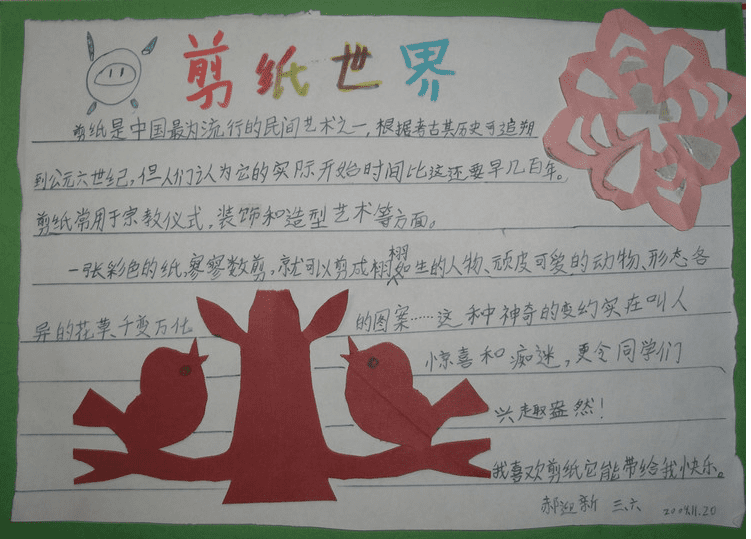 剪纸世界
剪纸是中国最为流行的民间艺术之一，根据考古其历史可追朔
到公元六世纪，但人们认为它的实际开始时间比这还要早几百年。
剪纸常用于宗教仪式，装饰和造型艺术等方面。
一张彩色的纸，寥寥数剪，就可以剪成栩栩如生的人物、顽皮可爱的动物、形态各
异的花草、千变万化的图案……这种神奇的变幻实在叫人
惊喜和痴迷，更令同学们
兴趣盎然！
我喜欢剪纸它能带给我快乐。
郝迎新 三.六 2009.11.20